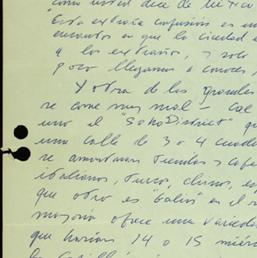 como usted dice de México
"Esta extraña confusión es un
encuentro en que la ciudad
a los extraños, y solo
poco llegamos a conocer,
Y otra de las grandes
se come muy mal — Cal
uno el "Soho District" qu
una calle de 3 o 4 cuadr
se amontonan tiendas y cafe
italianos, turcos, chinos, es
que otro es "Galis" en el
mayoría ofrece una variedad
que harían 14 o 15